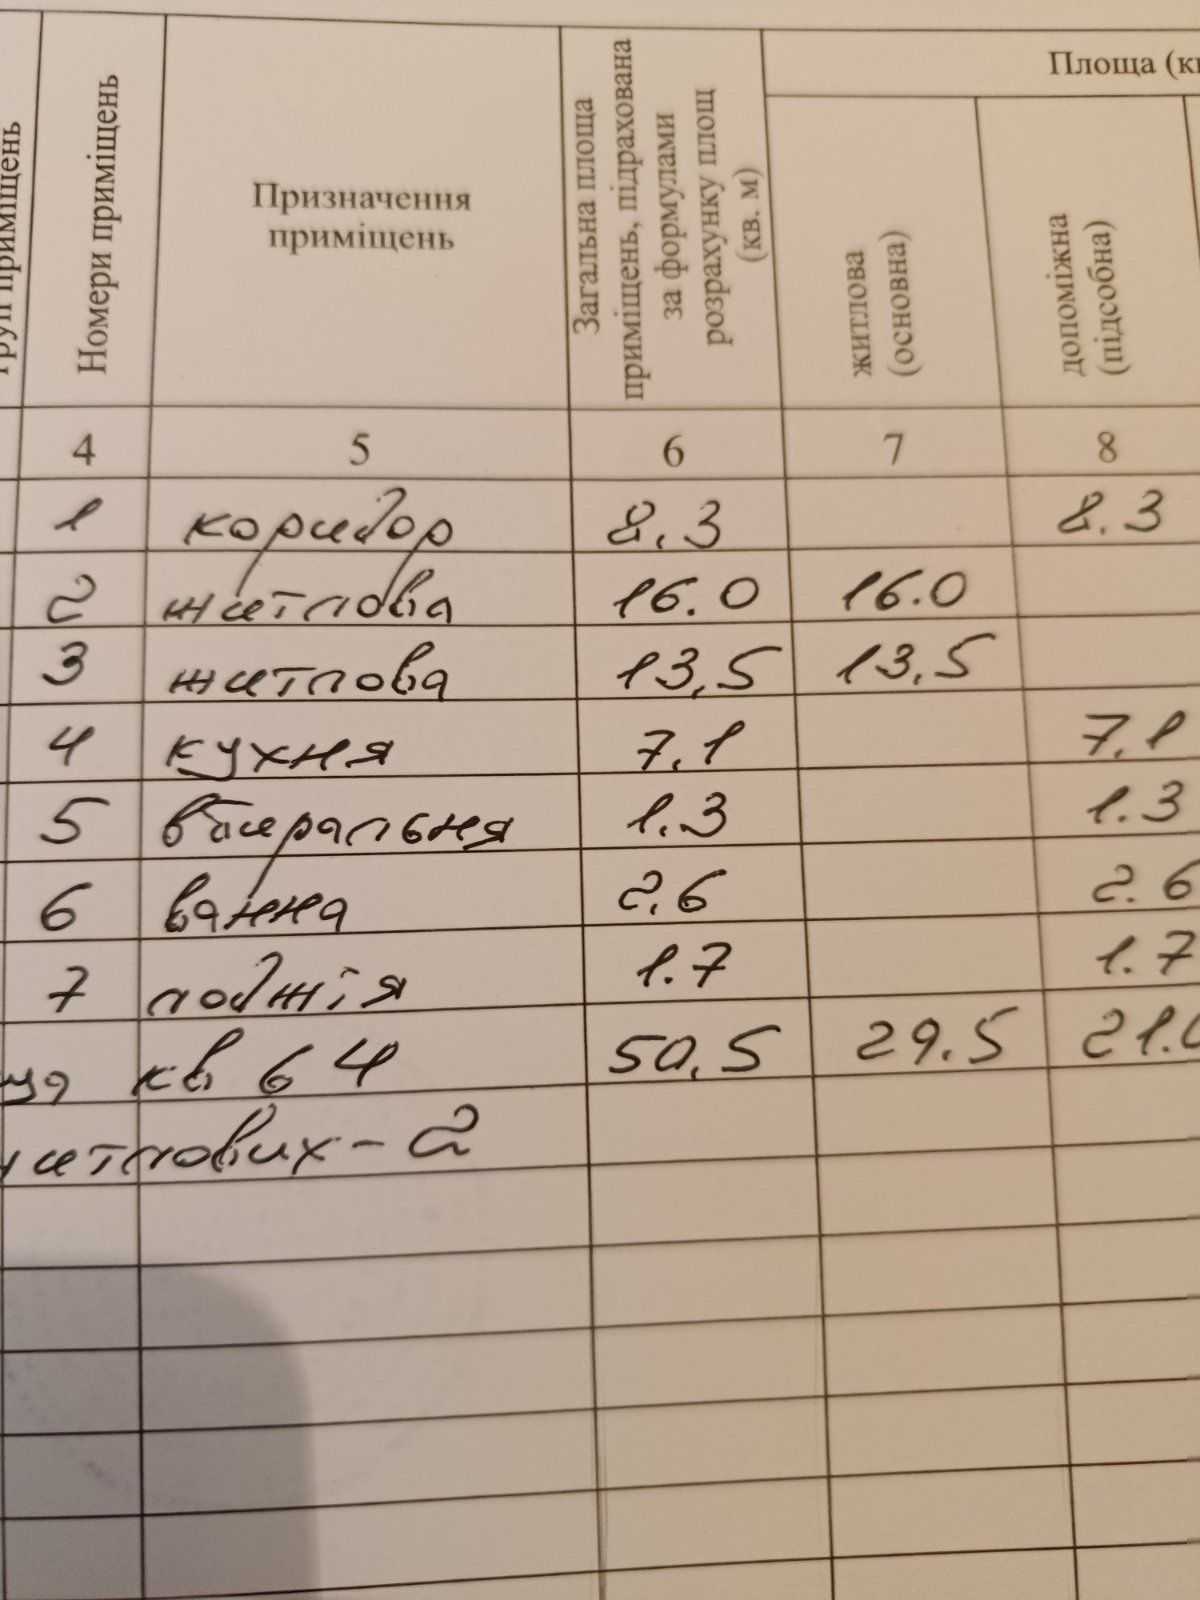 Площа (кв
груп приміщень
Номери приміщень
Призначення
приміщень
Загальна площа
приміщень, підрахована
за формулами
розрахунку площ
(кв. м)
житлова
(основна)
допоміжна
(підсобна)
4 5 6 7 8
1 коридор 8.3 8.3
2 житлова 16.0 16.0
3 житлова 13,5 13,5
4 кухня 7,1 7,1
5 вбиральня 1.3 1.3
6 ванна 2,6 2.6
7 лоджія 1.7 1.7
кв 64 50,5 29.5 21.0
житлових - 2